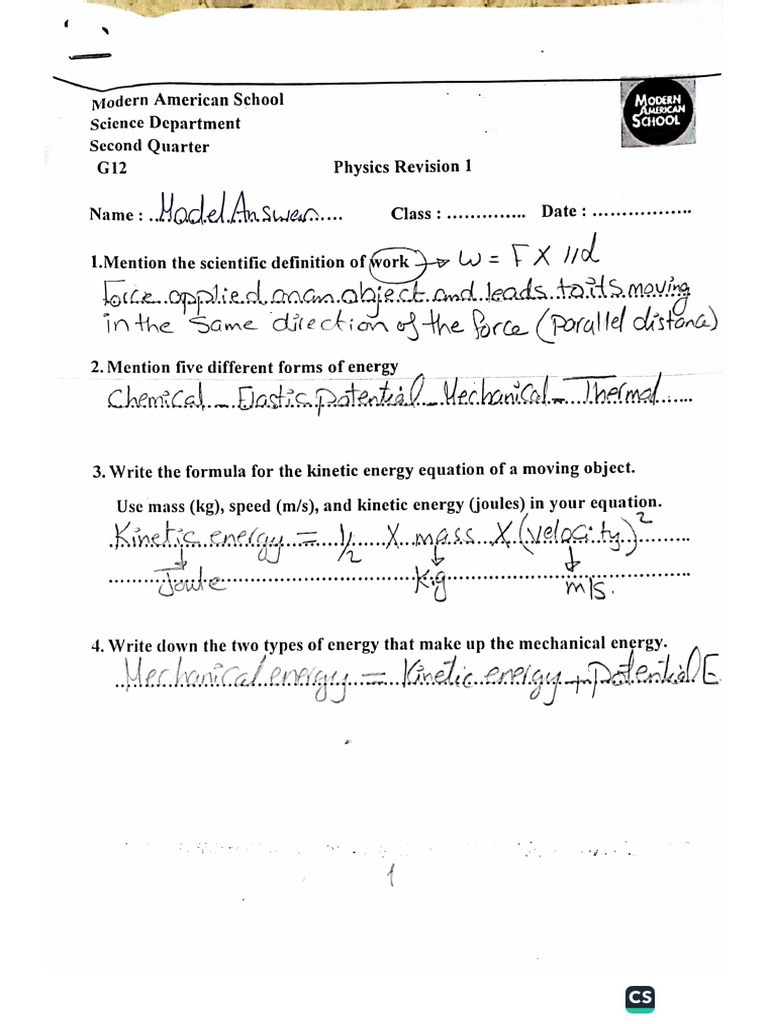 Modern American School
Science Department
Second Quarter
G12 Physics Revision 1
MODERN AMERICAN SCHOOL
Name : ..Model Answer.... Class : .............. Date : .................
1.Mention the scientific definition of work → W = F X //d
Force applied on an object and leads to its moving
in the same direction of the force (parallel distance)
2. Mention five different forms of energy
Chemical - Elastic potential - Mechanical - Thermal......
3. Write the formula for the kinetic energy equation of a moving object.
Use mass (kg), speed (m/s), and kinetic energy (joules) in your equation.
Kinetic energy = 1/2 X mass X (velocity)²
Joule Kg m/s.
4. Write down the two types of energy that make up the mechanical energy.
Mechanical energy = Kinetic energy + Potential E
1
CS